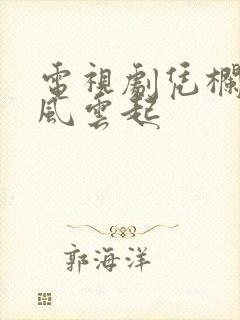 電視劇凭欄
風雲起
郭海洋